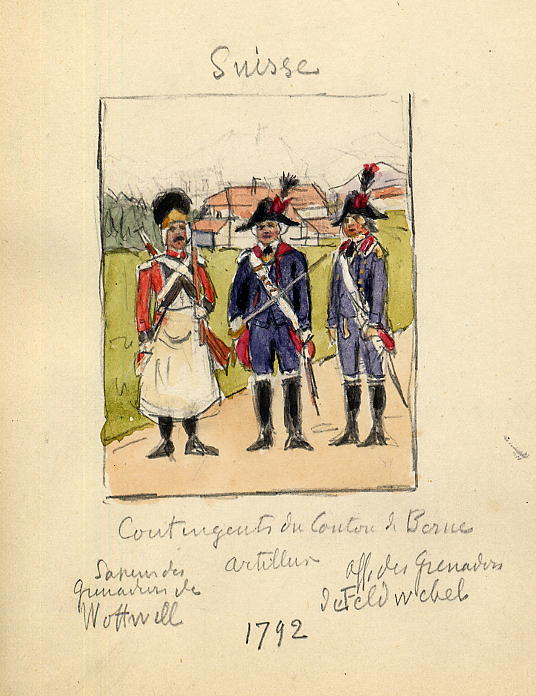 Suisse
Contingents du Canton de Berne
Sapeur des
Grenadiers de
Wottwill
Artilleur
Off. des Grenadiers
de Feldwebel
1792